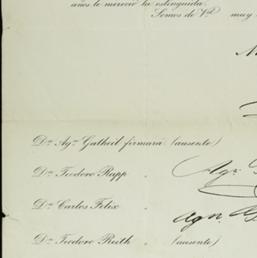 años le mereció la estinguida
Somos de Vd. muy
Dn. Agn. Gutheil firmará (ausente)
Dn. Teodoro Rapp "
Dn. Carlos Felix "
Dn. Teodoro Reith " (ausente)